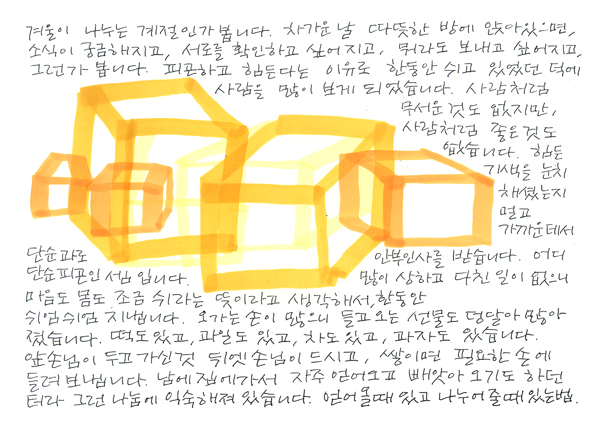 겨울이 나누는 계절인가 봅니다. 차가운 날 따뜻한 방에 앉아있으면,
소식이 궁금해지고, 서로를 확인하고 싶어지고, 뭐라도 보내고 싶어지고,
그런가 봅니다. 피곤하고 힘든다는 이유로 한동안 쉬고 있었던 덕에
사람을 많이 보게 되었습니다. 사람처럼
무서운 것도 없지만,
사람처럼 좋은 것도
없습니다. 힘든
기색을 눈치
채셨는지
멀고
가까운데서
단순과로 안부인사를 받습니다. 어디
단순피곤인 셈입니다. 많이 상하고 다친 일이 없으니
마음도 몸도 조금 쉬라는 뜻이라고 생각해서, 한동안
쉬엄쉬엄 지냅니다. 오가는 손이 많으니 들고 오는 선물도 덩달아 많아
졌습니다. 떡도 있고, 과일도 있고, 차도 있고, 과자도 있습니다.
앞손님이 두고 가신 것 뒤엣 손님이 드시고, 쌓이면 필요한 손에
들려 보냅니다. 남에 집에 가서 자주 얻어오고 빼앗아 오기도 하던
터라 그런 나눔에 익숙해져 있습니다. 얻어올 때 있고 나누어 줄 때 있는 법.